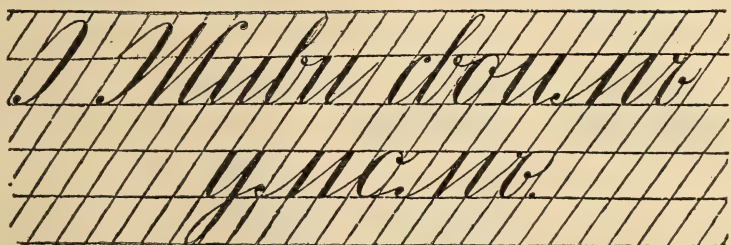 Живи своимъ
умомъ.